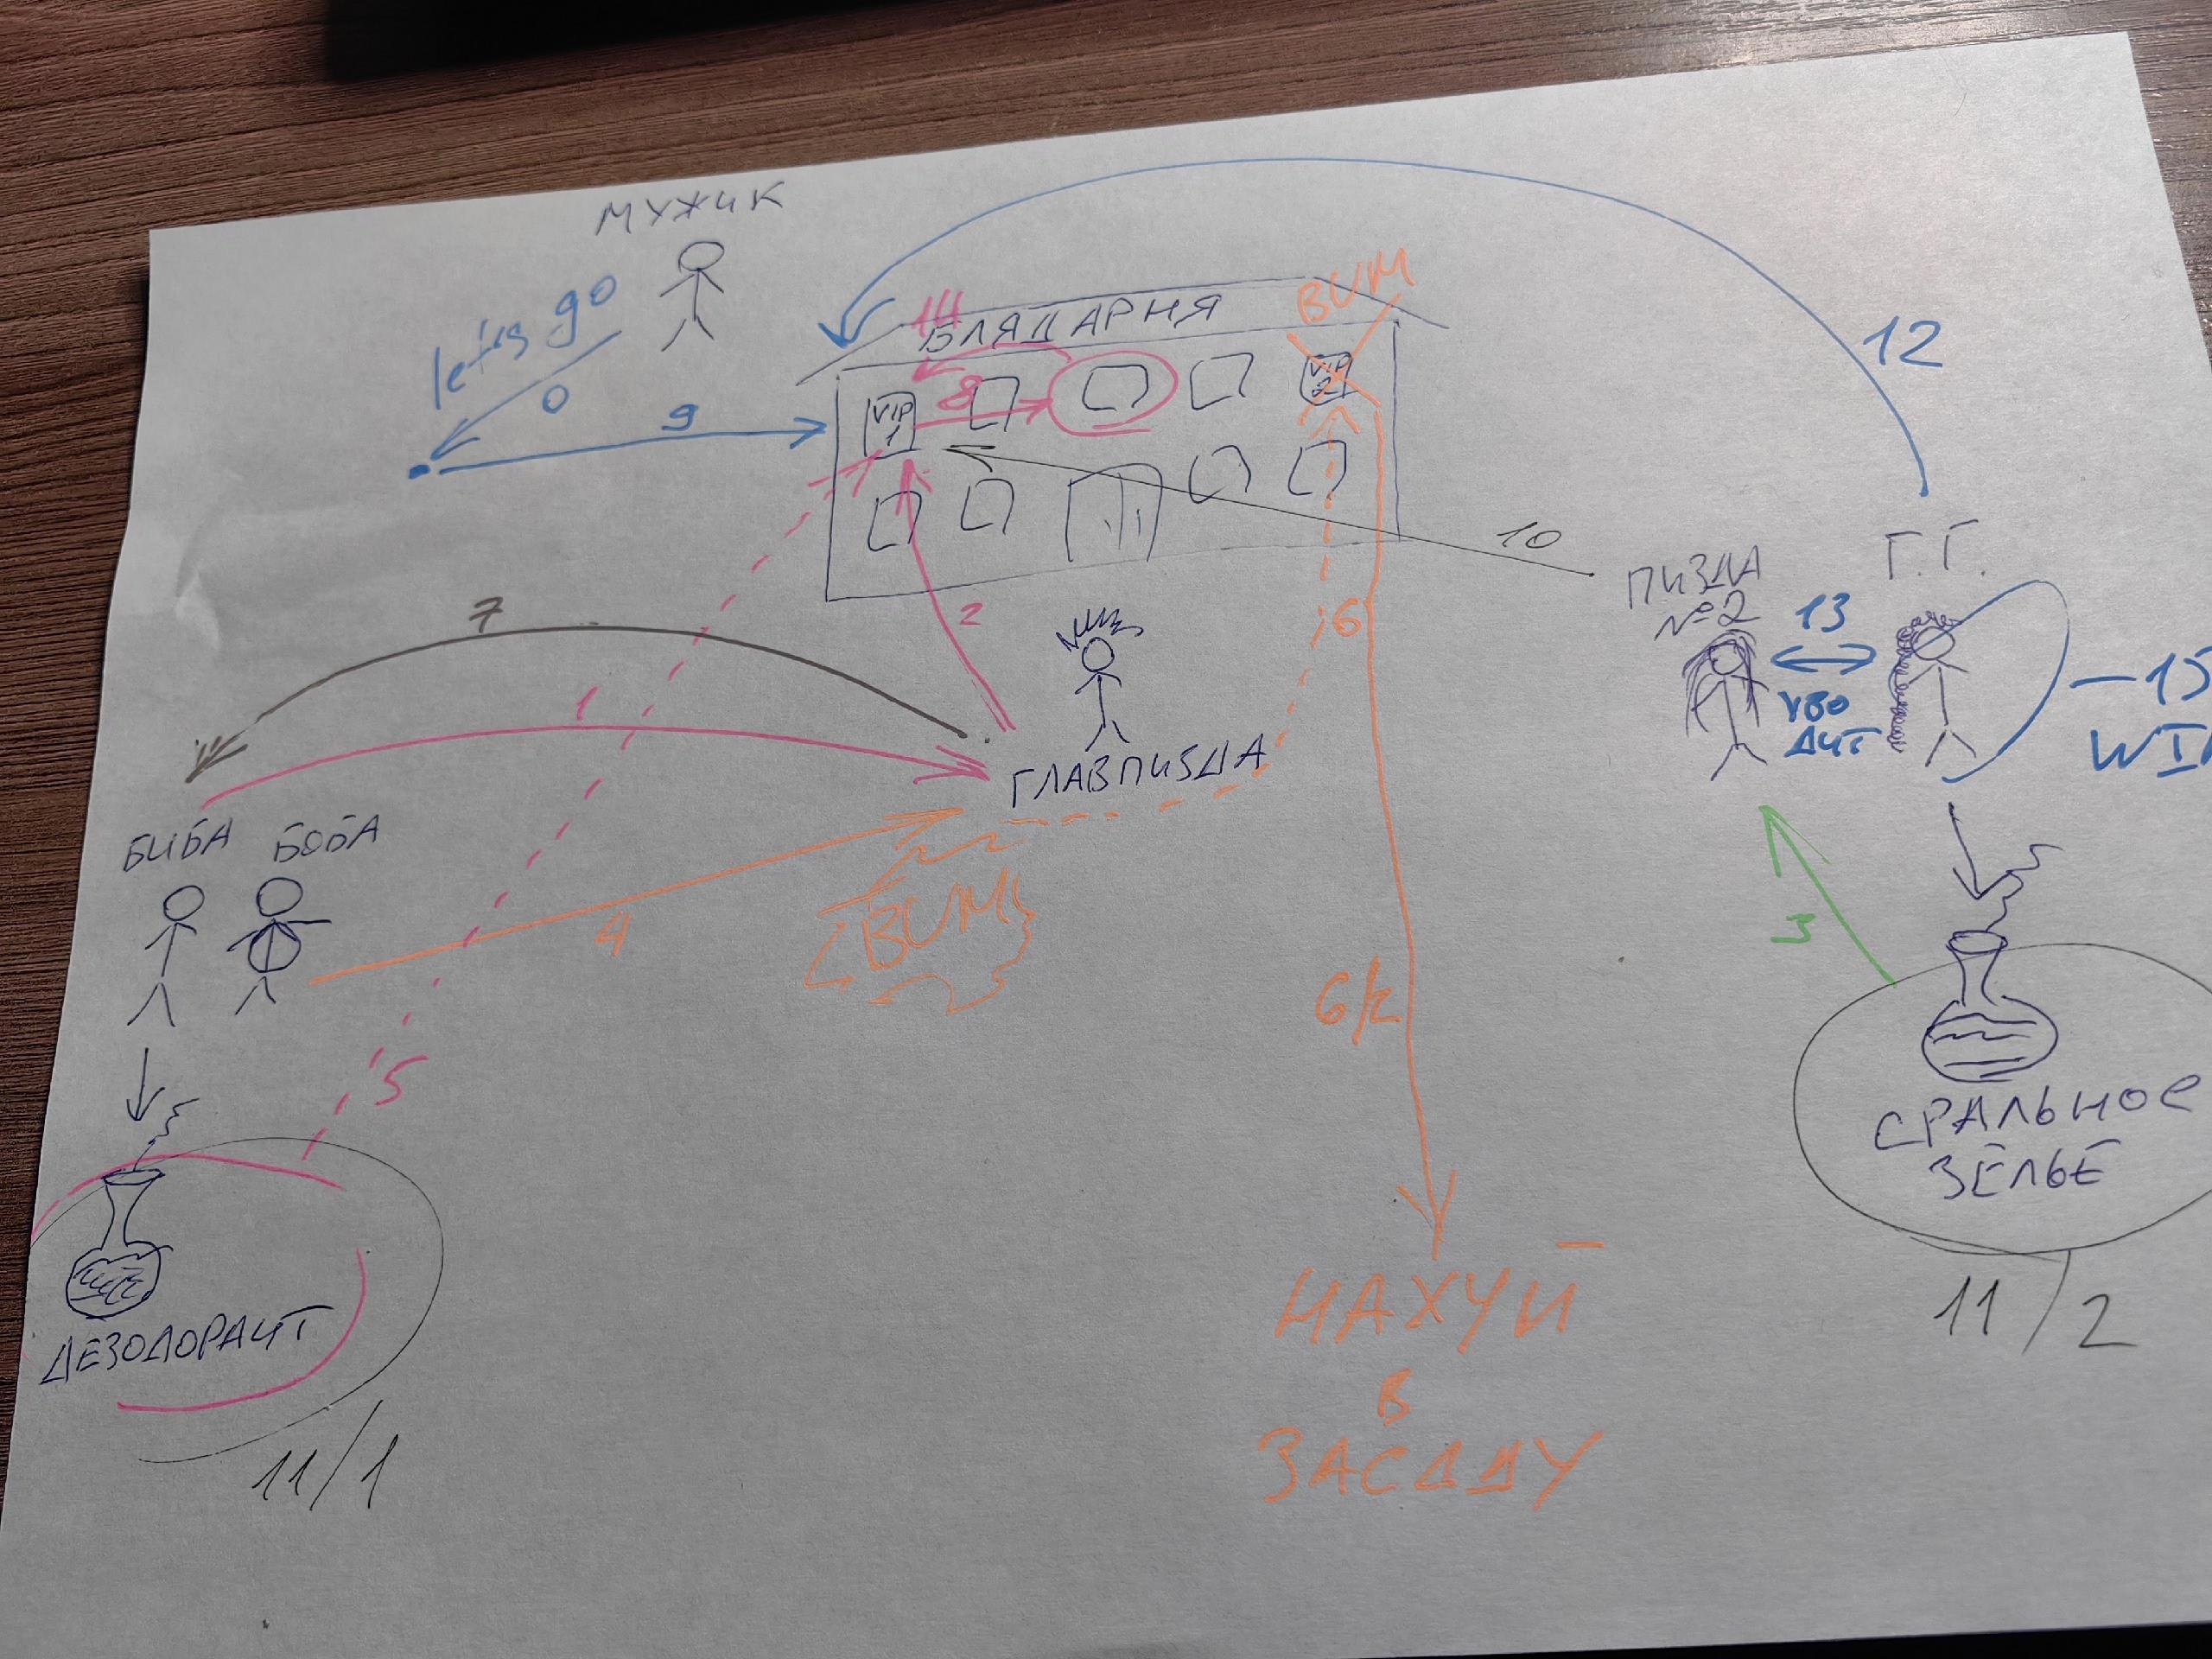 МУЖИК
let's go
0
9
12
14
БЛЯДАРНЯ
BUM
VIP
1
8
VIP
2
10
7
1
2
6
ГЛАВПИЗДА
ПИЗДА
№2
Г.Г.
13
УВО
ДИТ
БИБА
БОБА
4
BUM
3
5
6/2
ДЕЗОДОРАНТ
11/1
СРАЛЬНОЕ
ЗЕЛЬЕ
11/2
НАХУЙ
В
ЗАСАДУ